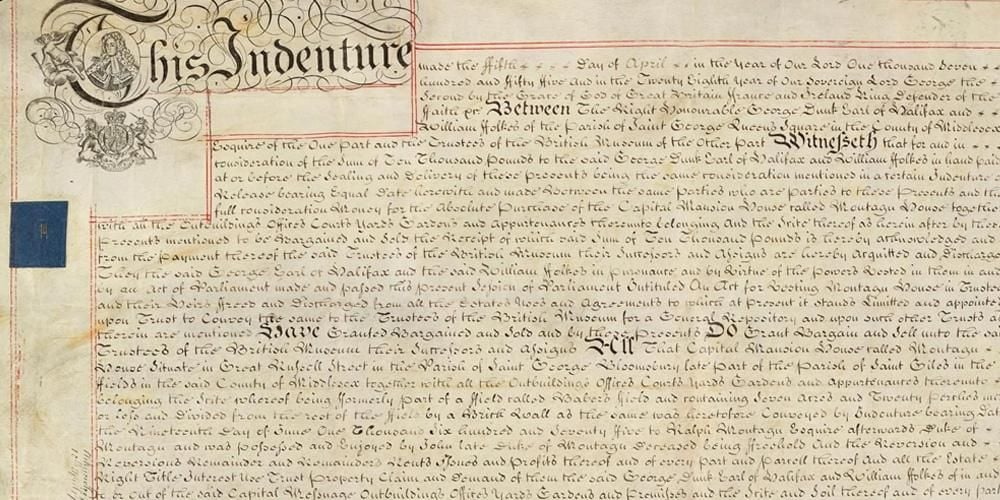 This Indenture made the ffifth Day of April in the Year of Our Lord One thousand Seven
hundred and ffifty ffive And in the Twenty Eighth Year of Our Sovereign Lord George the
Second by the Grace of God of Great Britain ffrance and Ireland King Defender of the
ffaith &c Between The Right Honourable George Dunk Earl of Halifax and
William ffolkes of the Parish of Saint George Queens Square in the County of Middlesex
Esquire of the One Part and the Trustees of the British Museum of the Other Part Witnesseth that for and in
consideration of the Sum of Ten Thousand Pounds to the said George Dunk Earl of Halifax and William ffolkes in hand paid
at or before the Sealing and Delivery of these Presents being the same consideration mentioned in a certain Indenture
Release bearing Equal Date herewith and made Between the same Parties who are parties to these Presents and the
full consideration Money for the Absolute Purchase of the Capital Mansion House called Montagu House together
with all the Outbuildings Offices Courts Yards Gardens and Appurtenances thereunto belonging And the Scite thereof as herein after by these
Presents mentioned to be Bargained and Sold the Receipt of which said Sum of Ten Thousand Pounds is hereby acknowledged and
from the Payment thereof the said Trustees of the British Museum their Successors and Assigns are hereby Acquitted and Discharged
They the said George Earl of Halifax and the said William ffolkes in Pursuance and by Virtue of the Powers Vested in them in and
by an Act of Parliament made and passed this present Session of Parliament Intituled An Act for Vesting Montagu House in Trustees
and their Heirs ffreed and Discharged from all the Estates Uses and Agreements to which at present it stands Limitted and appointed
upon Trust to Convey the same to the Trustees of the British Museum for a General Repository and upon such other Trusts as
therein are mentioned Have Granted Bargained and Sold and by these Presents Do Grant Bargain and Sell unto the said
Trustees of the British Museum their Successors and Assigns All That Capital Mansion House called Montagu
House Situate in Great Russell Street in the Parish of Saint George Bloomsbury late Part of the Parish of Saint Giles in the
ffields in the said County of Middlesex together with all the Outbuildings Offices Courts Yards Gardens and Appurtenances thereunto
belonging the Scite whereof being fformerly Part of a ffield called Babers ffield and containing Seven Acres and Twenty Perches
or less and Divided from the rest of the ffield by a Brick Wall as the same was heretofore Conveyed by Indenture bearing Date
the Nineteenth Day of June One Thousand Six hundred and Seventy ffive to Ralph Montagu Esquire afterwards Duke of
Montagu and was Possessed and Enjoyed by John late Duke of Montagu Deceased being ffreehold And the Reversion and
Reversions Remainder and Remainders Rents Issues and Profits thereof and of every Part and Parcell thereof And all the Estate
Right Title Interest Use Trust Property Claim and Demand of them the said George Dunk Earl of Halifax and William ffolkes of in and
to or out of the said Capital Messuage Outbuildings Offices Yards Gardens and Promises and the Scite and Soil thereof and of every